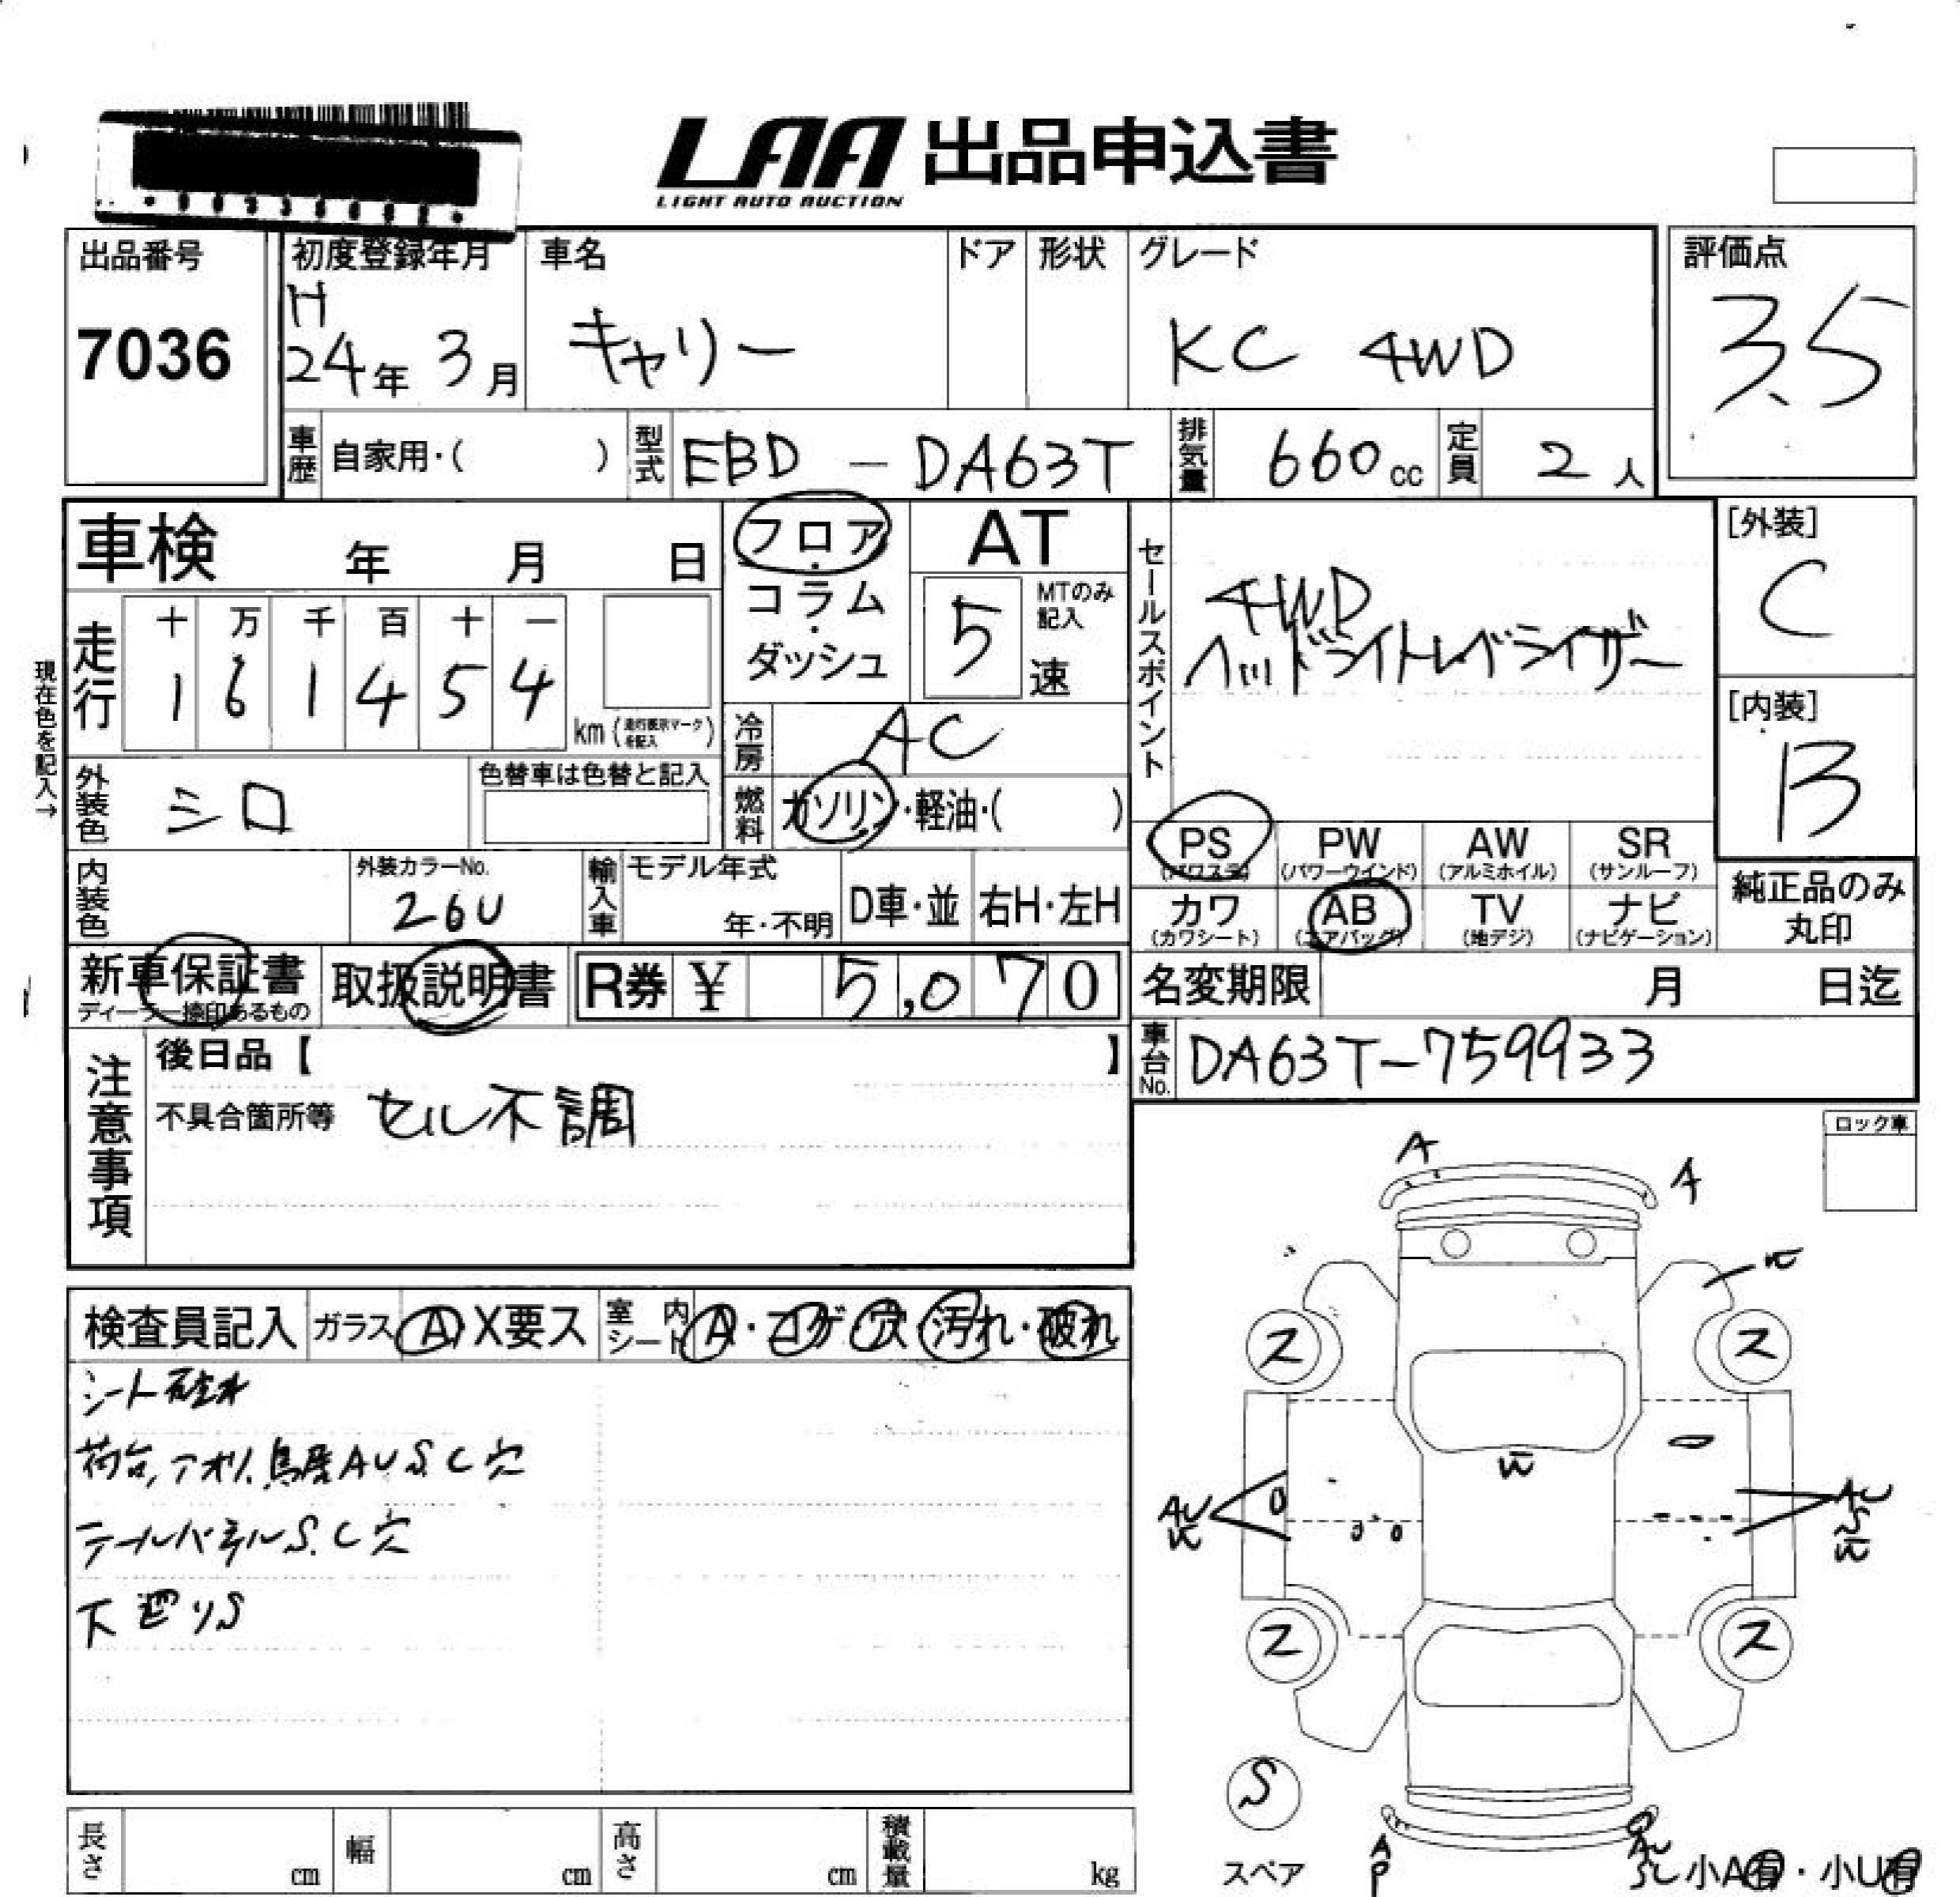 LAA 出品申込書
LIGHT AUTO AUCTION
出品番号
7036
初度登録年月
H
24年 3月
車名
キャリー
ドア
形状
グレード
KC 4WD
評価点
3.5
車歴 自家用・( )
型式 EBD - DA63T
排気量 660 cc
定員 2人
車検 年 月 日
フロア・コラム・ダッシュ
AT
5速
MTのみ記入
セールスポイント
4WD
ヘッドライトレベライザー
[外装]
C
[内装]
B
現在色を記入→
走行
十 万 千 百 十 一
1 6 1 4 5 4
km (走行表示マークを記入)
冷房 AC
外装色 シロ
色替車は色替と記入
燃料 ガソリン・軽油・( )
PS (パワステ)
PW (パワーウインド)
AW (アルミホイル)
SR (サンルーフ)
カワ (カワシート)
AB (エアバッグ)
TV (地デジ)
ナビ (ナビゲーション)
純正品のみ丸印
内装色
外装カラーNo.
26U
輸入車
モデル年式
年・不明
D車・並
右H・左H
新車保証書
ディーラー捺印あるもの
取扱説明書
R券 ¥ 5,070
名変期限 月 日迄
車台No. DA63T-759933
注意事項
後日品【 】
不具合箇所等 セル不調
ロック車
検査員記入
ガラス A X要ス
室内シート A・コゲ・穴・汚れ・破れ
シート破れ
荷台,アオリ.鳥居AUS.C穴
テールパネルS.C穴
下廻りS
A
A
W
ス
ス
W
AU
W
AU
S
W
ス
ス
S
スペア
A
P
AU
S
小A有・小U有
長さ cm
幅 cm
高さ cm
積載量 kg